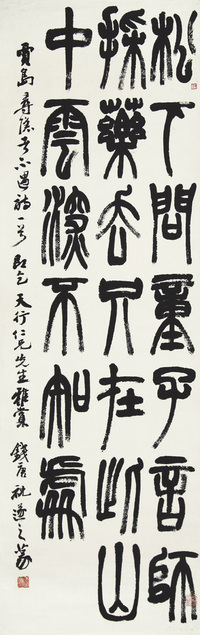 松下問童子言師
採藥去只在此山
中雲深不知處
賈島尋隱者不遇詩一首 即乞 天行仁兄先生雅賞 錢唐祝遂之篆